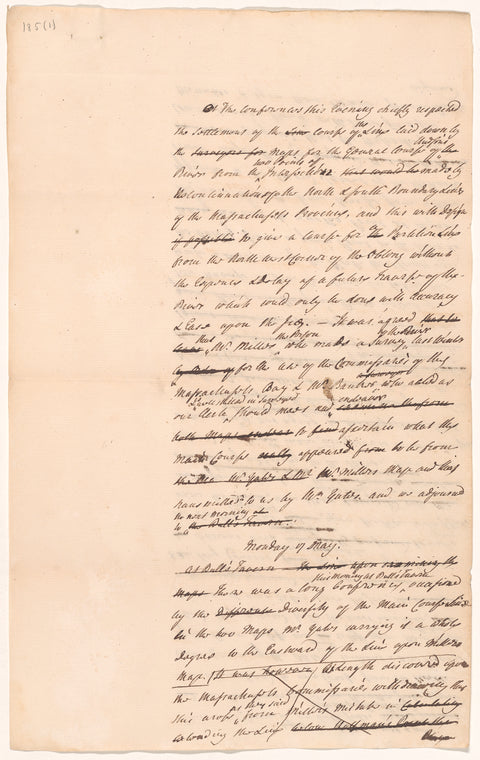 185(1)
At The Conferences this Evening chiefly respected
the Settlement of the Line Course of the Line laid down by
the Surveyors for Maps for the General Course of the Hudson's
River from the two Points of Intersection that would be made by
the continuations of the North & South Boundary Lines
of the Massachusetts Province, and this with Design
if possible to give a Course for The Partition Line
from the North West Corner of the Oblong without
the Expence & Delay of a future Traverse of the
River which could only be done with Accuracy
& Ease upon the Ice. — It was agreed that
that Mr. Miller the Person who made a Survey of the River last Winter
by Order of for the Use of the Commissaries of the
Massachusetts Bay & Mr. Banker a Surveyor who acted as
our Clerk & well skilled in Surveying should meet and endeavor
both Maps to find ascertain what the
Main Course really appeared from to be from
Mr. Yates & Mr. Millers Map and this
transmitted to us by Mr. Yates. and we adjourned
to next morning at
to the Bull's Tavern.
Monday 17 May.
At Bull's Tavern The Line upon examining the
Maps There was a long Conference this Morning at Bull's Tavern occasioned
by the Difference Diversity of the Main Course Line
in the two Maps Mr. Yates carrying it a whole
degree to the Eastward of the Line upon Millers
Map. It was however At Length discovered upon
the Massachusetts Commissaries withdrawing that
this arose as they said from Millers mistake in
the Line